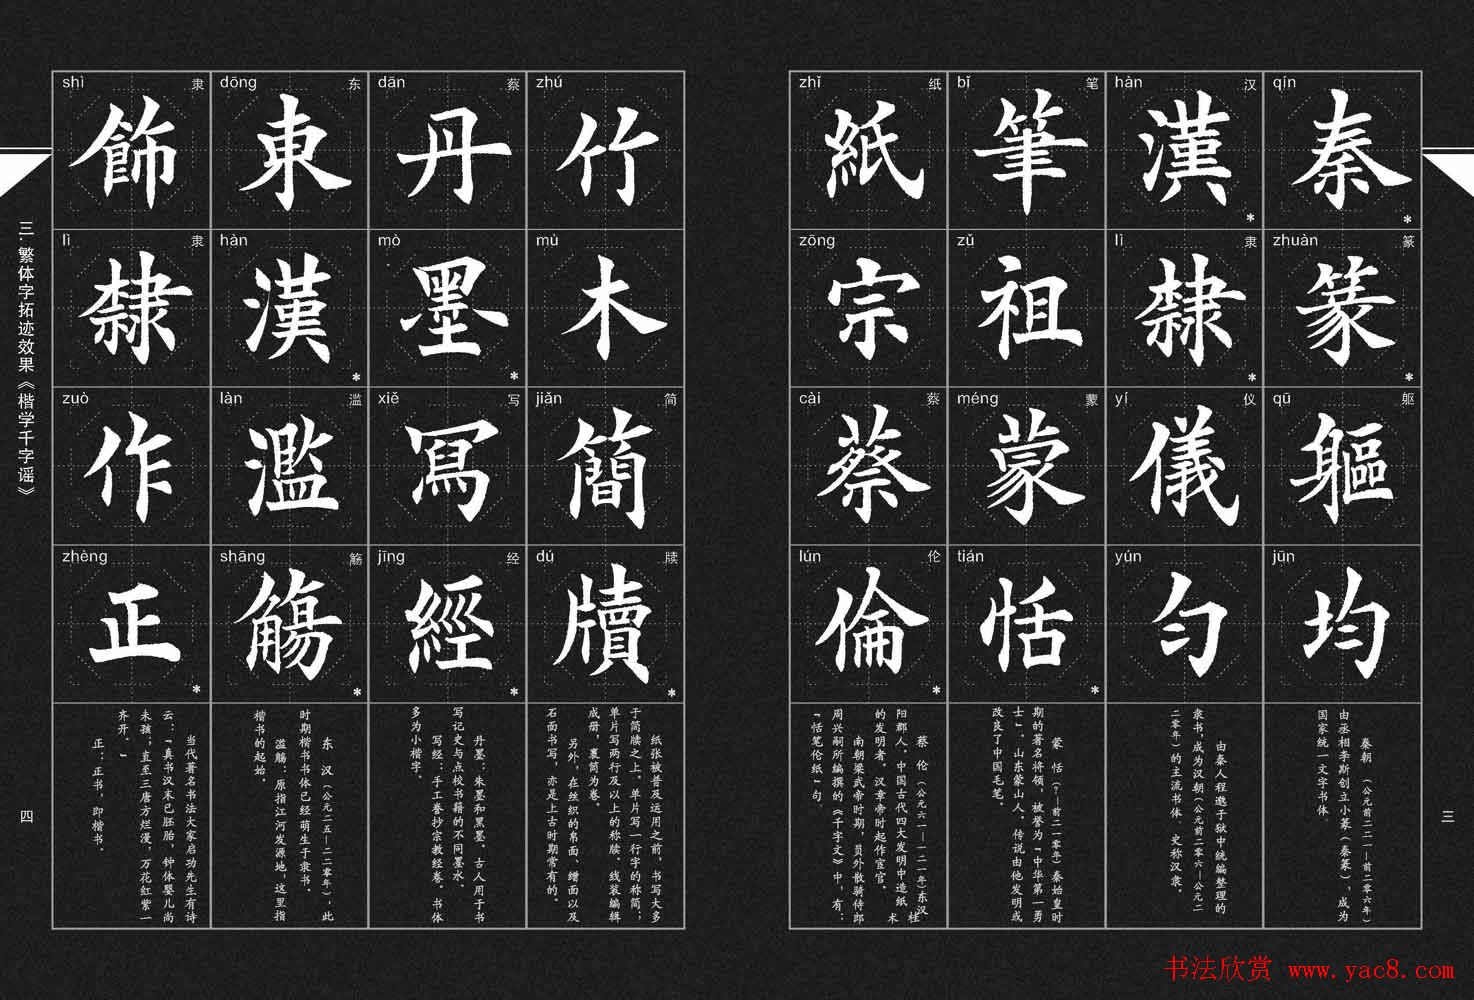 qín
秦
*
zhuàn 篆
篆
*
qū 躯
軀
jūn
均
秦朝 （公元前二二一—前二零六年）
由丞相李斯创立小篆（秦篆），成为
国家统一文字书体。
hàn 汉
漢
*
lì 隶
隸
*
yí 仪
儀
yún
匀
由秦人程邈于狱中统编整理的
隶书，成为汉朝（公元前二零六—公元二
二零年）的主流书体，史称汉隶。
bǐ 笔
筆
zǔ
祖
méng 蒙
蒙
tián
恬
*
蒙 恬（？—前二一零年）秦始皇时
期的著名将领，被誉为“中华第一勇
士”。山东蒙山人。传说由他发明或
改良了中国毛笔。
zhǐ 纸
紙
zōng
宗
cài 蔡
蔡
lún 伦
倫
*
蔡 伦（公元六一—一二一年）东汉桂
阳郡人。中国古代四大发明中造纸术
的发明者。汉章帝时起作宦官。
南朝梁武帝时期，员外散骑侍郎
周兴嗣所编撰的《千字文》中，有：
“恬笔伦纸”句。
三
zhú
竹
mù
木
jiǎn 简
簡
dú 牍
牘
*
纸张被普及运用之前，书写大多
于简牍之上。单片写一行字的称简；
单片写两行及以上的称牍。线装编辑
成册，裹筒为卷。
另外，在丝织的帛面、缯面以及
石面书写，亦是上古时期常有的。
dān 蔡
丹
mò
墨
*
xiě 写
寫
jīng 经
經
*
丹墨：朱墨和黑墨，古人用于书
写记史与点校书籍的不同墨水。
写经：手工誊抄宗教经卷。书体
多为小楷字。
dōng 东
東
hàn
漢
*
làn 滥
濫
shāng 觞
觴
*
东 汉（公元二五—二二零年），此
时期楷书书体已经萌生于隶书。
滥觞：原指江河发源地，这里指
楷书的起始。
shì 隶
飾
lì 隶
隸
zuò
作
zhèng
正
*
当代著名书法大家启功先生有诗
云：“真书汉末已胚胎，钟体婴儿尚
未孩；直至三唐方烂漫，万花红紫一
齐开。”
正：正书，即楷书。
三.繁体字拓迹效果《楷学千字谣》
四
书法欣赏 www.yac8.com